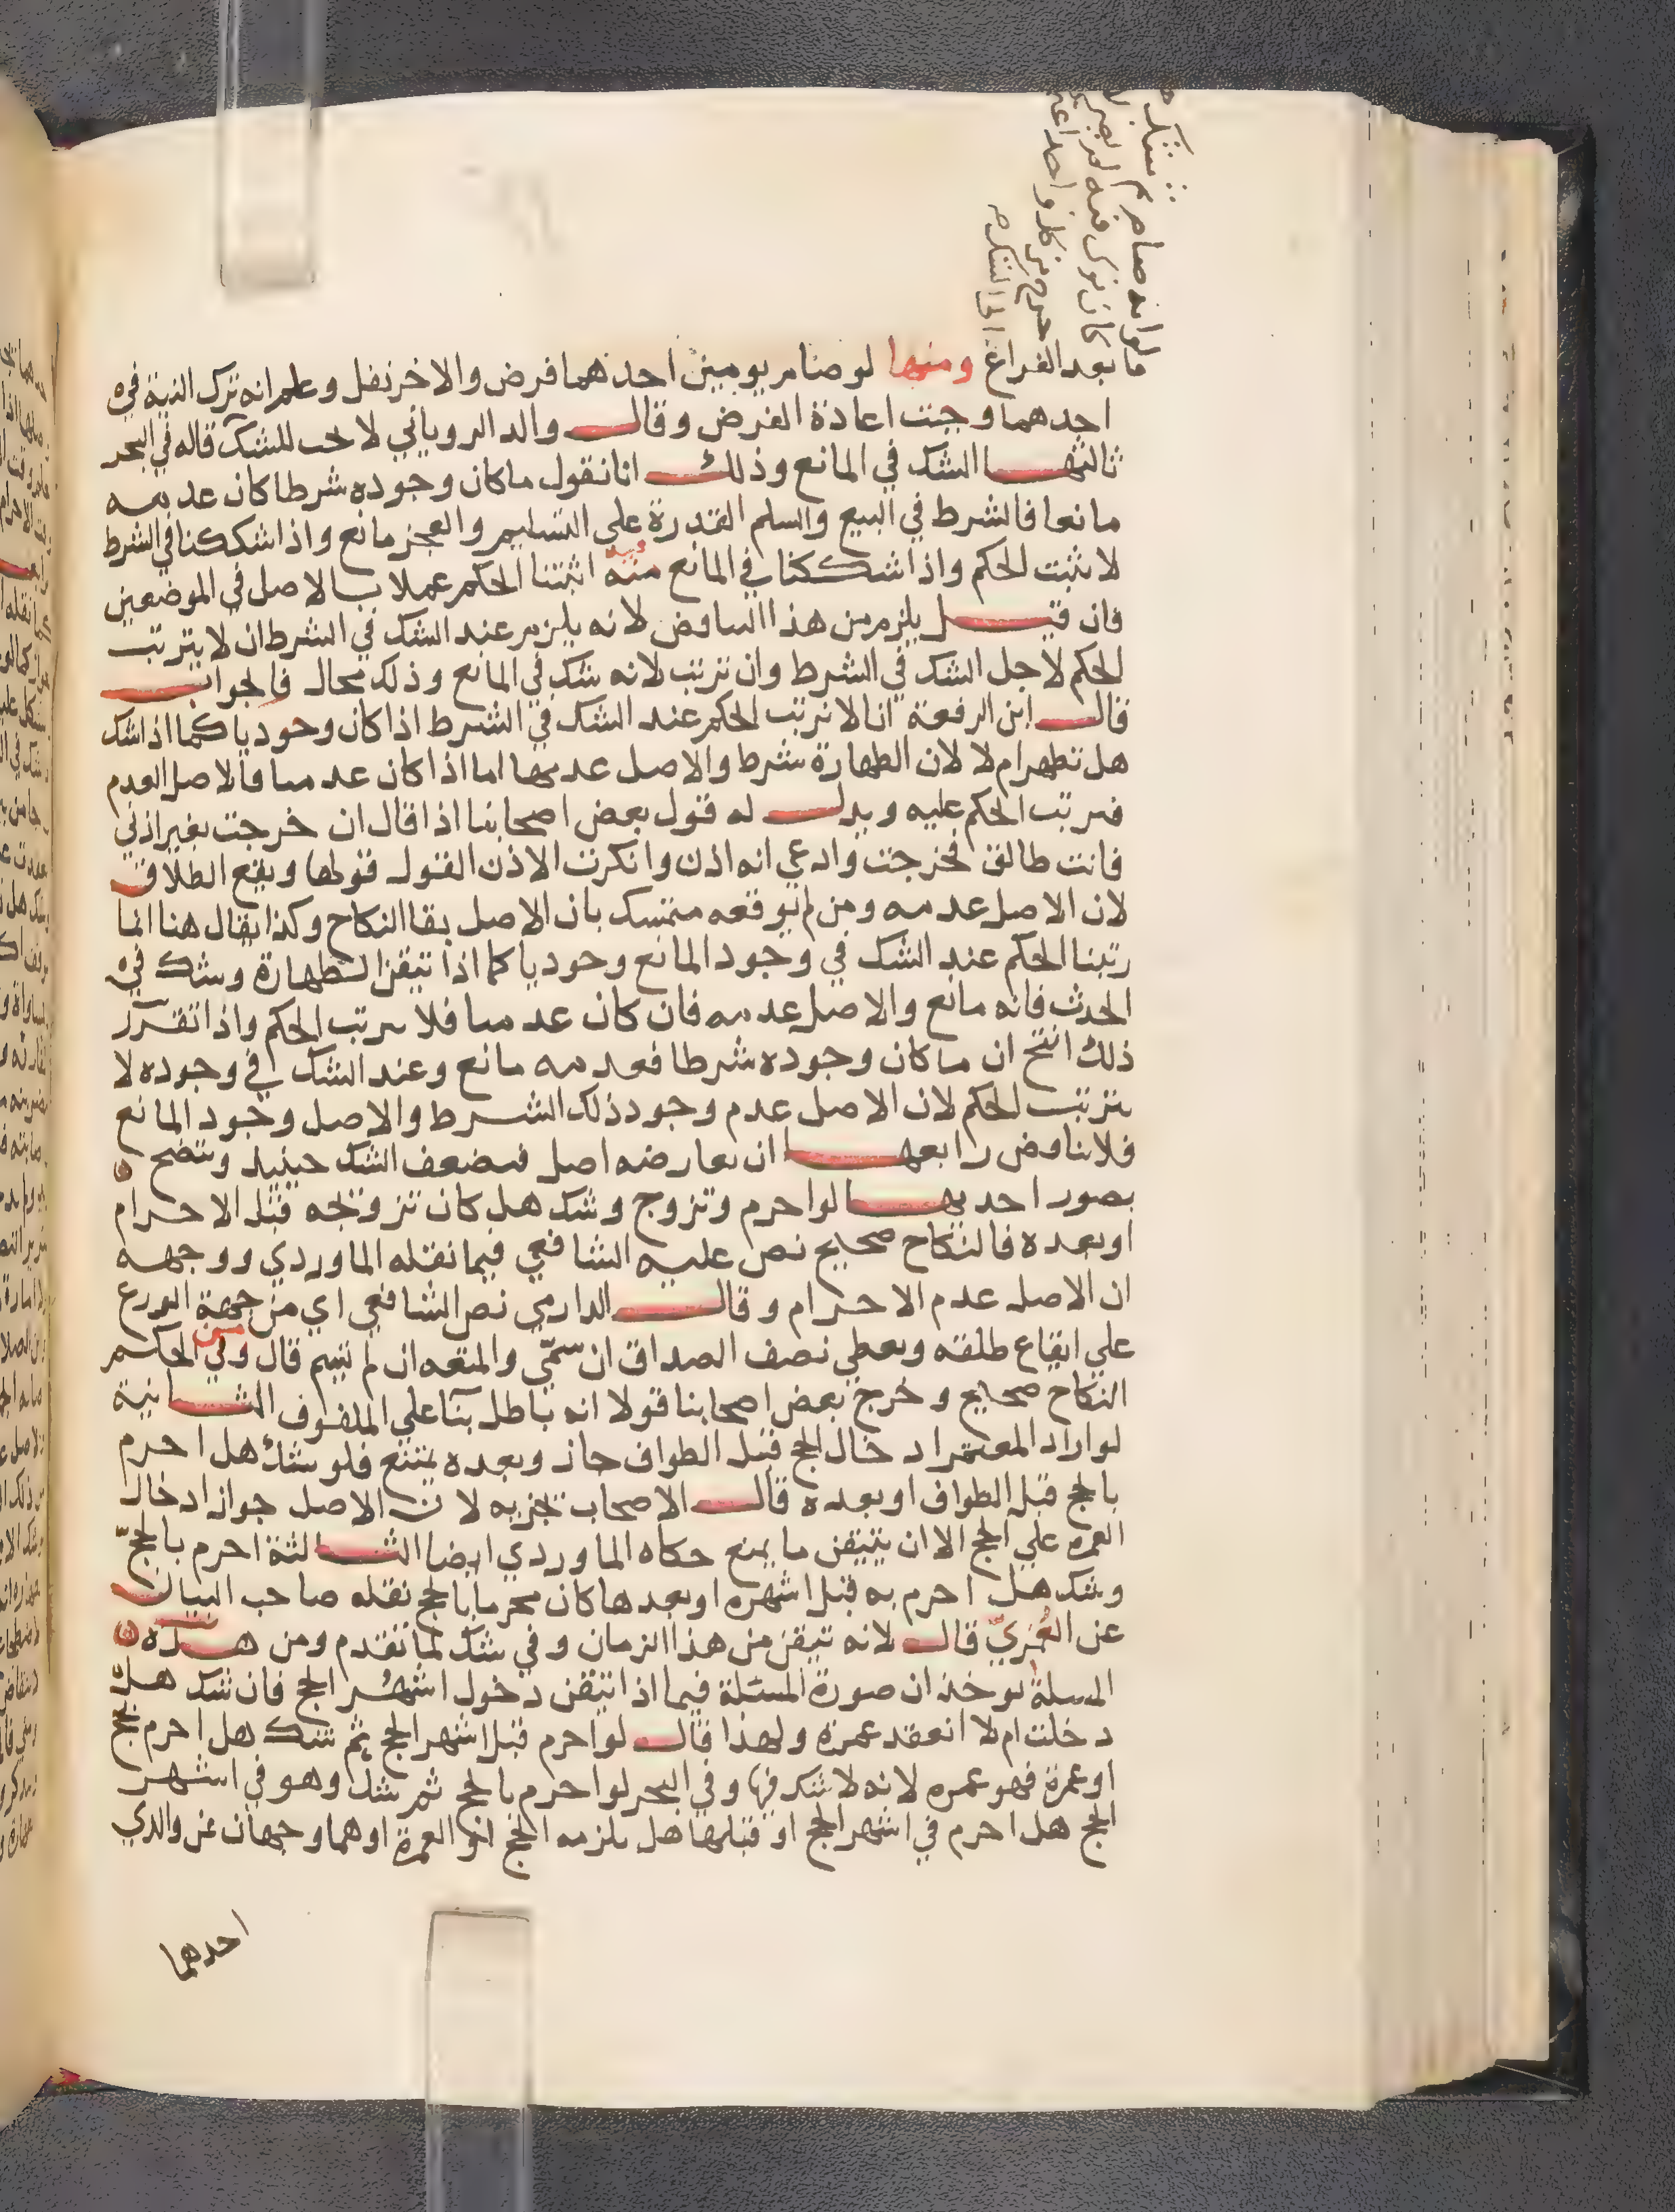 ما بعد الفراغ ومنها لو صام يومين احدهما فرض والاخر نفل وعلم انه ترك النية في
احدهما وجبت اعادة الفرض وقال والد الروياني لا يجب للشك قاله في البحر
ثالثها الشك في المانع وذلك انا نقول ما كان وجوده شرطا كان عدمه
مانعا فالشرط في البيع والسلم القدرة على التسليم والعجز مانع واذا شككنا في الشرط
لا نثبت الحكم واذا شككنا في المانع اثبتنا الحكم عملا بالاصل في الموضعين
فان قيل يلزم من هذا التناقض لانه يلزم عند الشك في الشرط ان لا يترتب
الحكم لاجل الشك في الشرط وان نرتب لانه شك في المانع وذلك محال فالجواب
قال ابن الرفعة انا لا نرتب الحكم عند الشك في الشرط اذا كان وجوديا كما اذا شك
هل تطهر ام لا لان الطهارة شرط والاصل عدمها اما اذا كان عدميا فالاصل العدم
فيرتب الحكم عليه ويدل له قول بعض اصحابنا اذا قال ان خرجت بغير اذني
فانت طالق فخرجت وادعى انه اذن وانكرت الاذن القول قولها ويقع الطلاق
لان الاصل عدمه ومن لم يوقعه متمسك بان الاصل بقا النكاح وكذا يقال هنا انما
رتبنا الحكم عند الشك في وجود المانع وجوديا كما اذا تيقن الطهارة وشك في
الحدث فانه مانع والاصل عدمه فان كان عدميا فلا يرتب الحكم واذا تقرر
ذلك انتج ان ما كان وجوده شرطا فعدمه مانع وعند الشك في وجوده لا
يترتب الحكم لان الاصل عدم وجود ذلك الشرط والاصل وجود المانع
فلا تناقض رابعها ان يعارضه اصل فيضعف الشك حينيد ويتضح
بصور احديها لو احرم وتزوج وشك هل كان تزوجه قبل الاحرام
او بعده فالنكاح صحيح نص عليه الشافعي فيما نقله الماوردي ووجهه
ان الاصل عدم الاحرام وقال الدارمي نص الشافعي اي من جهة الورع
على ايقاع طلقه ويعطي نصف الصداق ان سمّي والمتعه ان لم يسم قال وفي الحكم
النكاح صحيح وخرج بعض اصحابنا قولا انه باطل بنآ على الملفوف الثانية
لو اراد المعتمر ادخال الحج قبل الطواف جاز وبعده يمتنع فلو شك هل احرم
بالحج قبل الطواف او بعده قال الاصحاب تجزيه لان الاصل جواز ادخال
العمره على الحج الا ان يتيقن ما يمنع حكاه الماوردي ايضا الثالثة احرم بالحجّ
وشك هل احرم به قبل اشهره او بعدها كان محرما بالحج نقله صاحب البيان
عن العُمَريّ قال لانه تيقن من هذا الزمان وفي شك لما تقدم ومن هذه
المسلة يوخذ ان صورة المسئلة فيما اذا تيقن دخول اشهر الحج فان شك هل
دخلت ام لا انعقد عمرة ولهذا قال لو احرم قبل اشهر الحج ثم شك هل احرم بحج
او عمرة فهو عمره لانه لا شك فيها وفي البحر لو احرم بالحج ثم شك وهو في اشهر
الحج هل احرم في اشهر الحج او قبلها هل يلزمه الحج او العمرة او هما وجهان عن والدي
احدهما